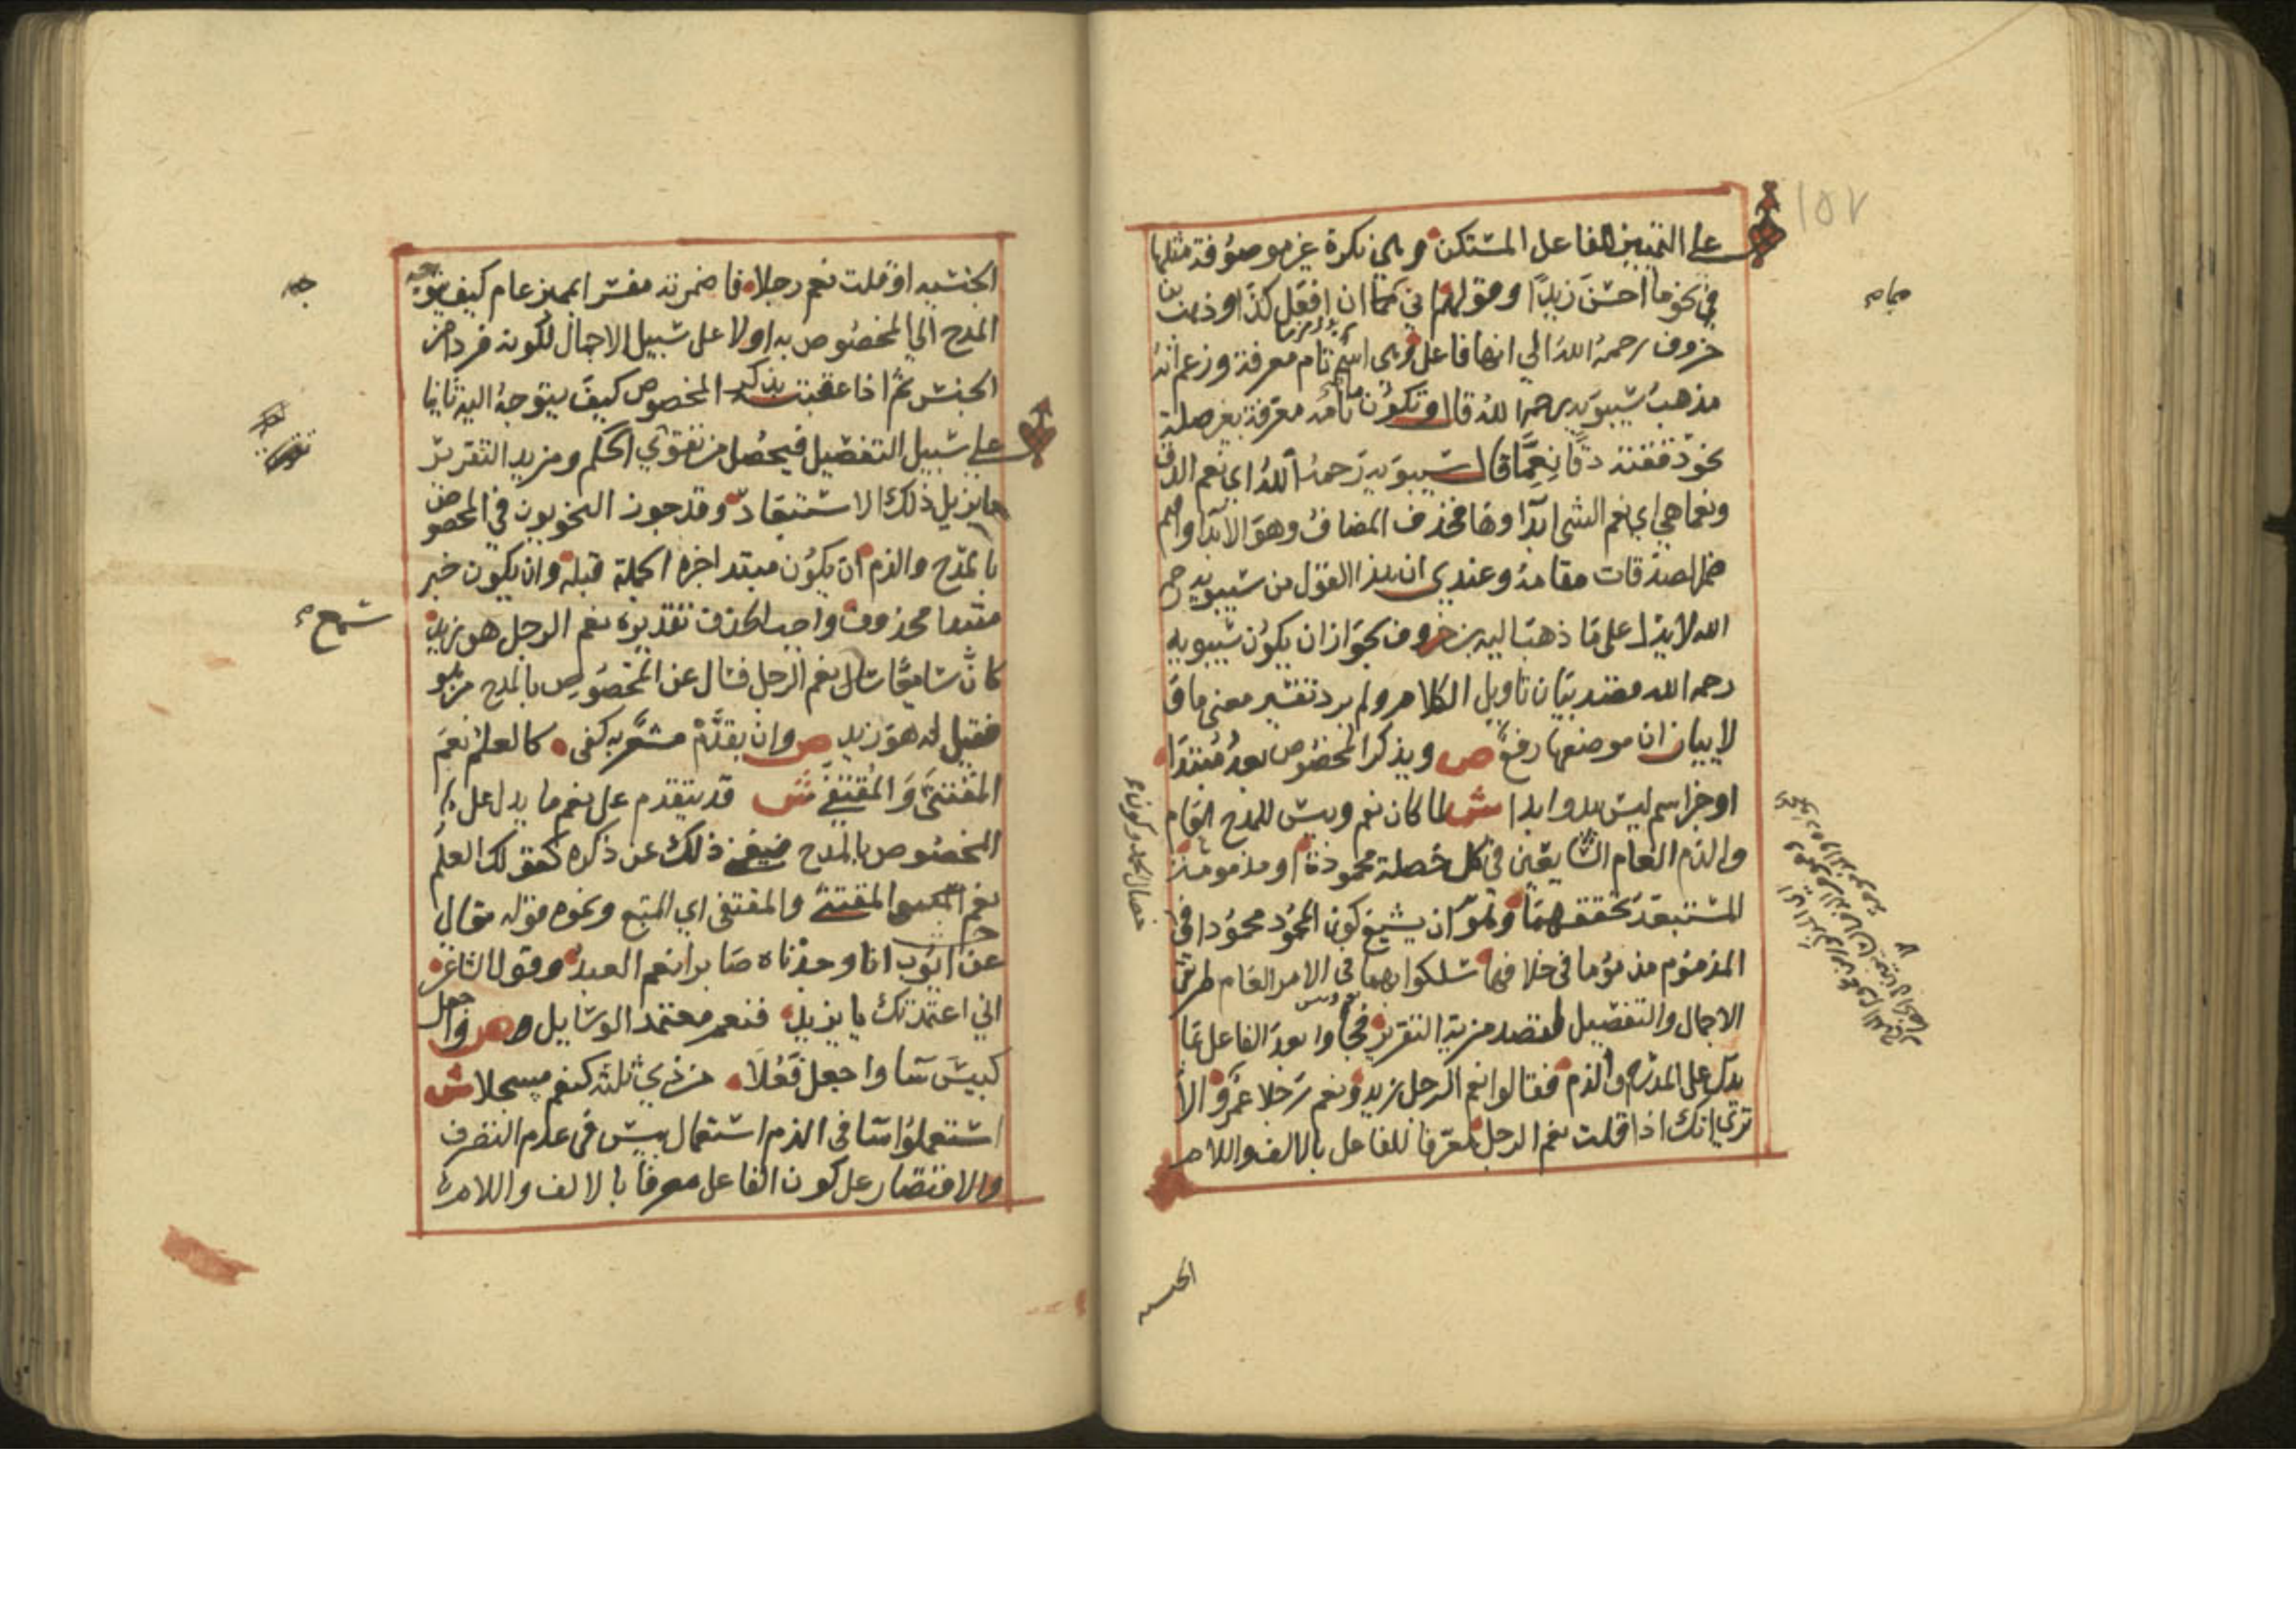 على التمييز للفاعل المستكن وهي نكرة غير موصوفة مثلها
في نحو ما احسن زيدا وقولهم اني مما ان افعل كذا وذهب بن
خروف رحمه الله الي انها فاعل وهي اسم تام معرفة وزعم انه
مذهب سيبويه رحمه الله قال وتكون ما تامه معرفة بغير صلة
نحو دققته دقا نعما قال سيبويه رحمه الله اي نعم الدق
ونعما هي اي نعم الشي ابداوها فحذف المضاف وهو الابدا واقيم
ضمير الصدقات مقامه وعندي ان هذا القول من سيبويه رحمه
الله لا يدل على ما ذهب اليه بن خروف لجواز ان يكون سيبويه
رحمه الله قصد بيان تاويل الكلام ولم يرد تفسير معنى ما ق
لا بيان ان موضعها رفع ص ويذكر المخصوص بعد مبتدا
او خبر اسم ليس يبدو ابدا ش لما كان نعم وبيس للمدح العام
والذم العام الشايعين في كل خصلة محمودة او مذمومة
المستبعد تحققهما وهو ان يشيع كون المحمود محمودا في
المذموم مذموما في خلافها سلكوا بهما في الامر العام طريقي
الاجمال والتفصيل لقصد مزية التقرير فجاوا بعد الفاعل بما
يدل على المدح والذم فقالوا نعم الرجل زيد ونعم رجلا عمرو الا
تري انك اذا قلت نعم الرجل معرفا للفاعل بالالف واللام
الجنسيه
الجنسيه او قلت نعم رجلا فاضمرته مفسرا بمميز عام كيف يتوجه
المدح الي المخصوص به اولا على سبيل الاجمال لكونه فردا من
الجنس ثم اذا عقبته بذكر المخصوص كيف يتوجه اليه ثانيا
على سبيل التفصيل فيحصل من تقوي الحكم ومزيد التقرير
ما يزيل ذلك الاستبعاد وقد جوز النحويون في المخصوص
بالمدح والذم ان يكون مبتدا خبره الجملة قبله وان يكون خبر
مبتدا محذوف واجب الحذف تقديره نعم الرجل هو زيد
كان سامعا سال نعم الرجل فسال عن المخصوص بالمدح من هو
فقيل له هو زيد ص وان يقدم مشعر به كفى كالعلم نعم
المقتنى والمقتفى ش قد يتقدم على نعم ما يدل على
المخصوص بالمدح فيغني ذلك عن ذكره كقولك العلم
نعم المقتنى والمقتفى اي المتبع ونحوه قوله تعالى
عن ايوب انا وجدناه صابرا نعم العبد وقول الشاعر
اني اعتمدتك يا يزيد فنعم معتمد الوسايل ص واجعل
كبيس سا واجعل فعلا من ذي ثلثة كنعم مسجلا ش
استعملوا سا في الذم استعمال بيس في عدم التصرف
والاقتصار على كون الفاعل معرفا بالالف واللام